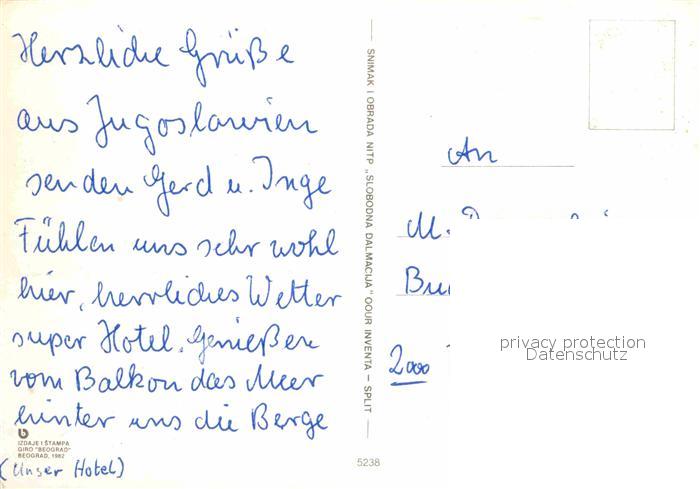 Herzliche Grüße
aus Jugoslawien
senden Gerd u. Inge
Fühlen uns sehr wohl
hier, herrliches Wetter
super Hotel. Genießen
vom Balkon das Meer
hinter uns die Berge
IZDAJE I ŠTAMPA
GIRO "BEOGRAD"
BEOGRAD, 1982
(Unser Hotel)
SNIMAK I OBRADA NITP „SLOBODNA DALMACIJA" OOUR INVENTA – SPLIT
5238
An
M.
2000
privacy protection
Datenschutz